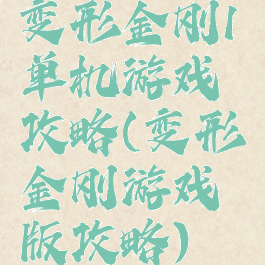 变形金刚1
单机游戏
攻略(变形
金刚游戏
版攻略)